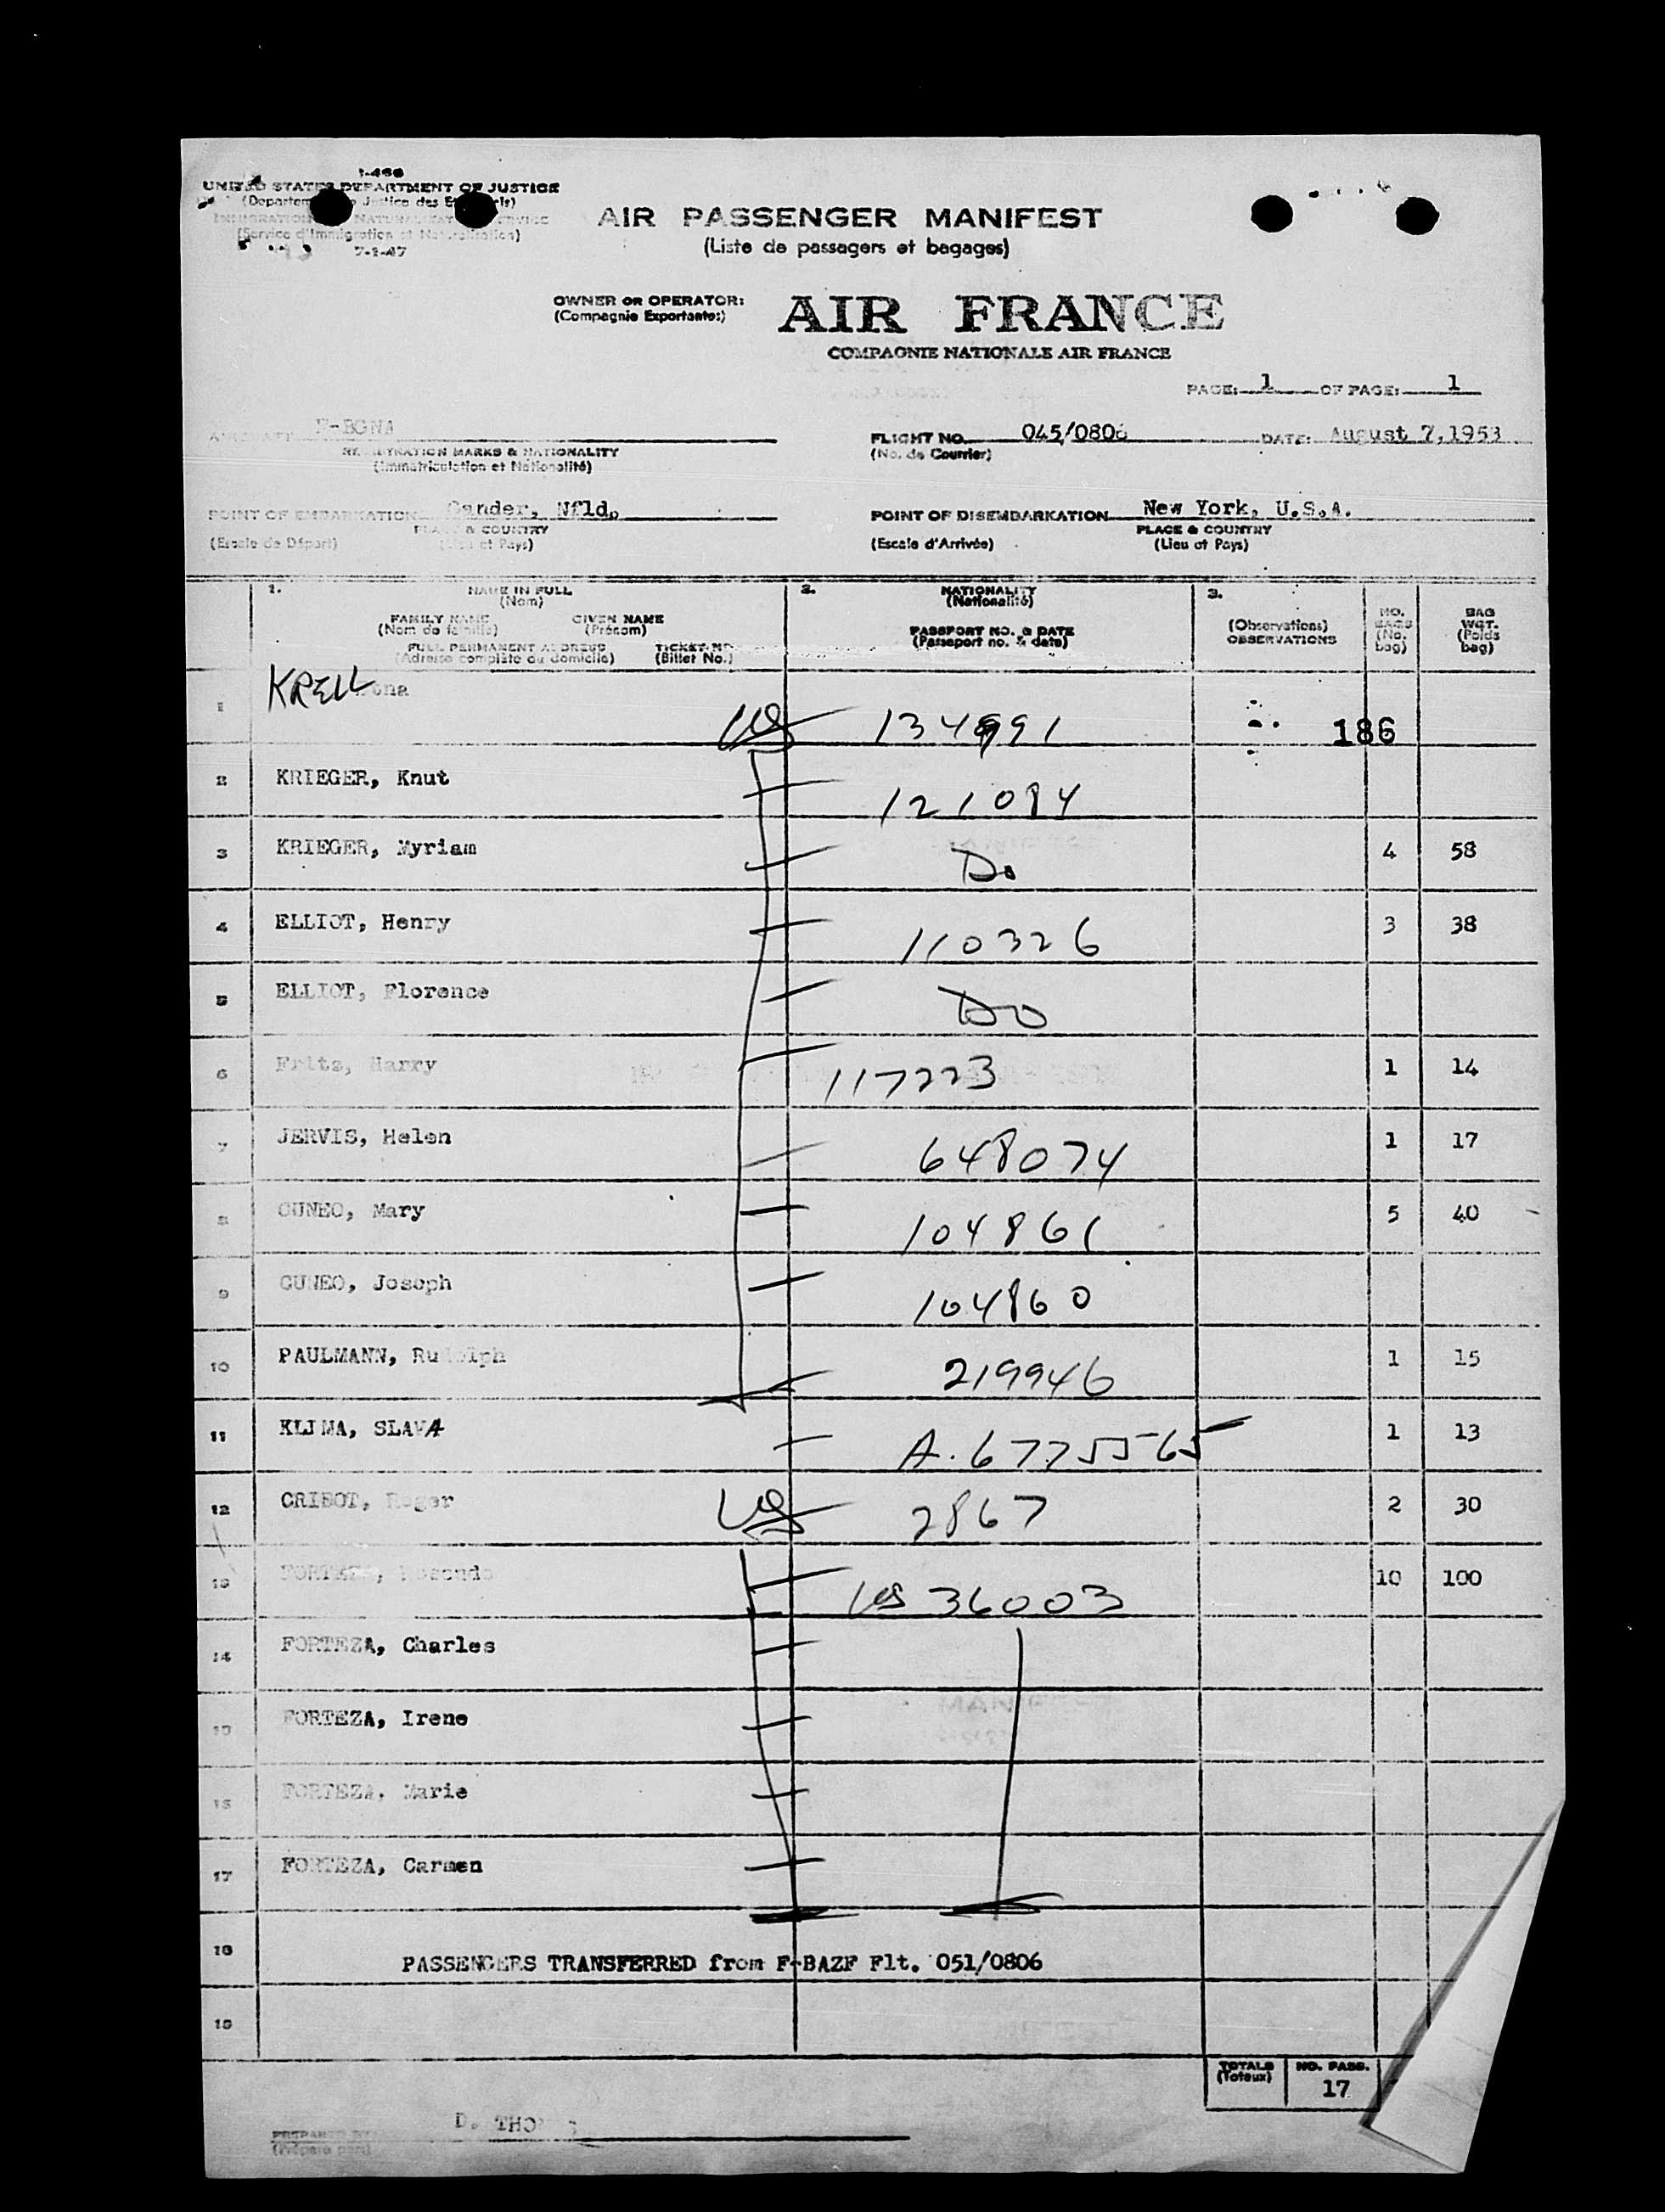 I-466
UNITED STATES DEPARTMENT OF JUSTICE
7-1-47
AIR PASSENGER MANIFEST
(Liste de passagers et bagages)
OWNER OR OPERATOR:
(Compagnie Exportante:)
AIR FRANCE
COMPAGNIE NATIONALE AIR FRANCE
PAGE: 1 OF PAGE: 1
F-BGNA
FLIGHT NO. 045/0806 DATE: August 7,1953
REGISTRATION MARKS & NATIONALITY
(Immatriculation et Nationalité)
(No. de Courrier)
POINT OF EMBARKATION Gander, Nfld.
PLACE & COUNTRY
(Escale de Départ) (Lieu et Pays)
POINT OF DISEMBARKATION New York, U.S.A.
PLACE & COUNTRY
(Escale d'Arrivée) (Lieu et Pays)
1. NAME IN FULL
(Nom)
FAMILY NAME GIVEN NAME
(Nom de famille) (Prénom)
FULL PERMANENT ADDRESS TICKET NO.
(Adresse complète du domicile) (Billet No.)
2. NATIONALITY
(Nationalité)
PASSPORT NO. & DATE
(Passeport no. & date)
3.
(Observations)
OBSERVATIONS
NO. BAGS
(No. bag)
BAG WGT.
(Poids bag)
1 KRELL US 134991 186
2 KRIEGER, Knut 121084
3 KRIEGER, Myriam Do 4 58
4 ELLIOT, Henry 110326 3 38
5 ELLIOT, Florence Do
6 Fritz, Harry 117223 1 14
7 JERVIS, Helen 648074 1 17
8 CUNEO, Mary 104861 5 40
9 CUNEO, Joseph 104860
10 PAULMANN, Rudolph 219946 1 15
11 KLIMA, SLAVA A.6775565 1 13
12 CRIBOT, Roger US 2867 2 30
13 FORTEZA, Rosendo US 36003 10 100
14 FORTEZA, Charles
15 FORTEZA, Irene
16 FORTEZA, Marie
17 FORTEZA, Carmen
18 PASSENGERS TRANSFERRED from F-BAZF Flt. 051/0806
19
TOTALS
(Totaux)
NO. PASS.
17
PREPARED BY
(Préparé par)
D.